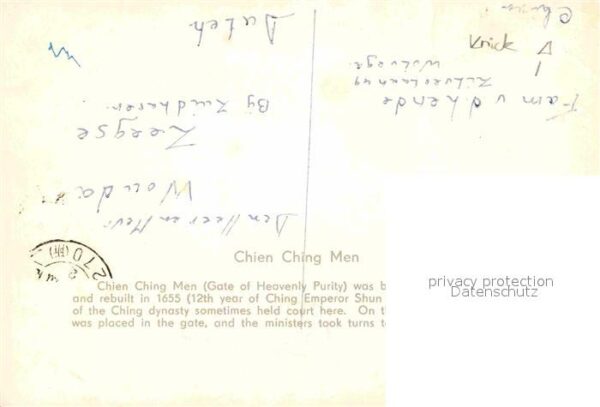 China
Knick
Fam v d hende
Wolvega
Dutch
Den Heer en Mevr
Wouda
Zeegse
By Zuidlaren
Chien Ching Men
Chien Ching Men (Gate of Heavenly Purity) was b
and rebuilt in 1655 (12th year of Ching Emperor Shun
of the Ching dynasty sometimes held court here. On t
was placed in the gate, and the ministers took turns t
privacy protection
Datenschutz
270